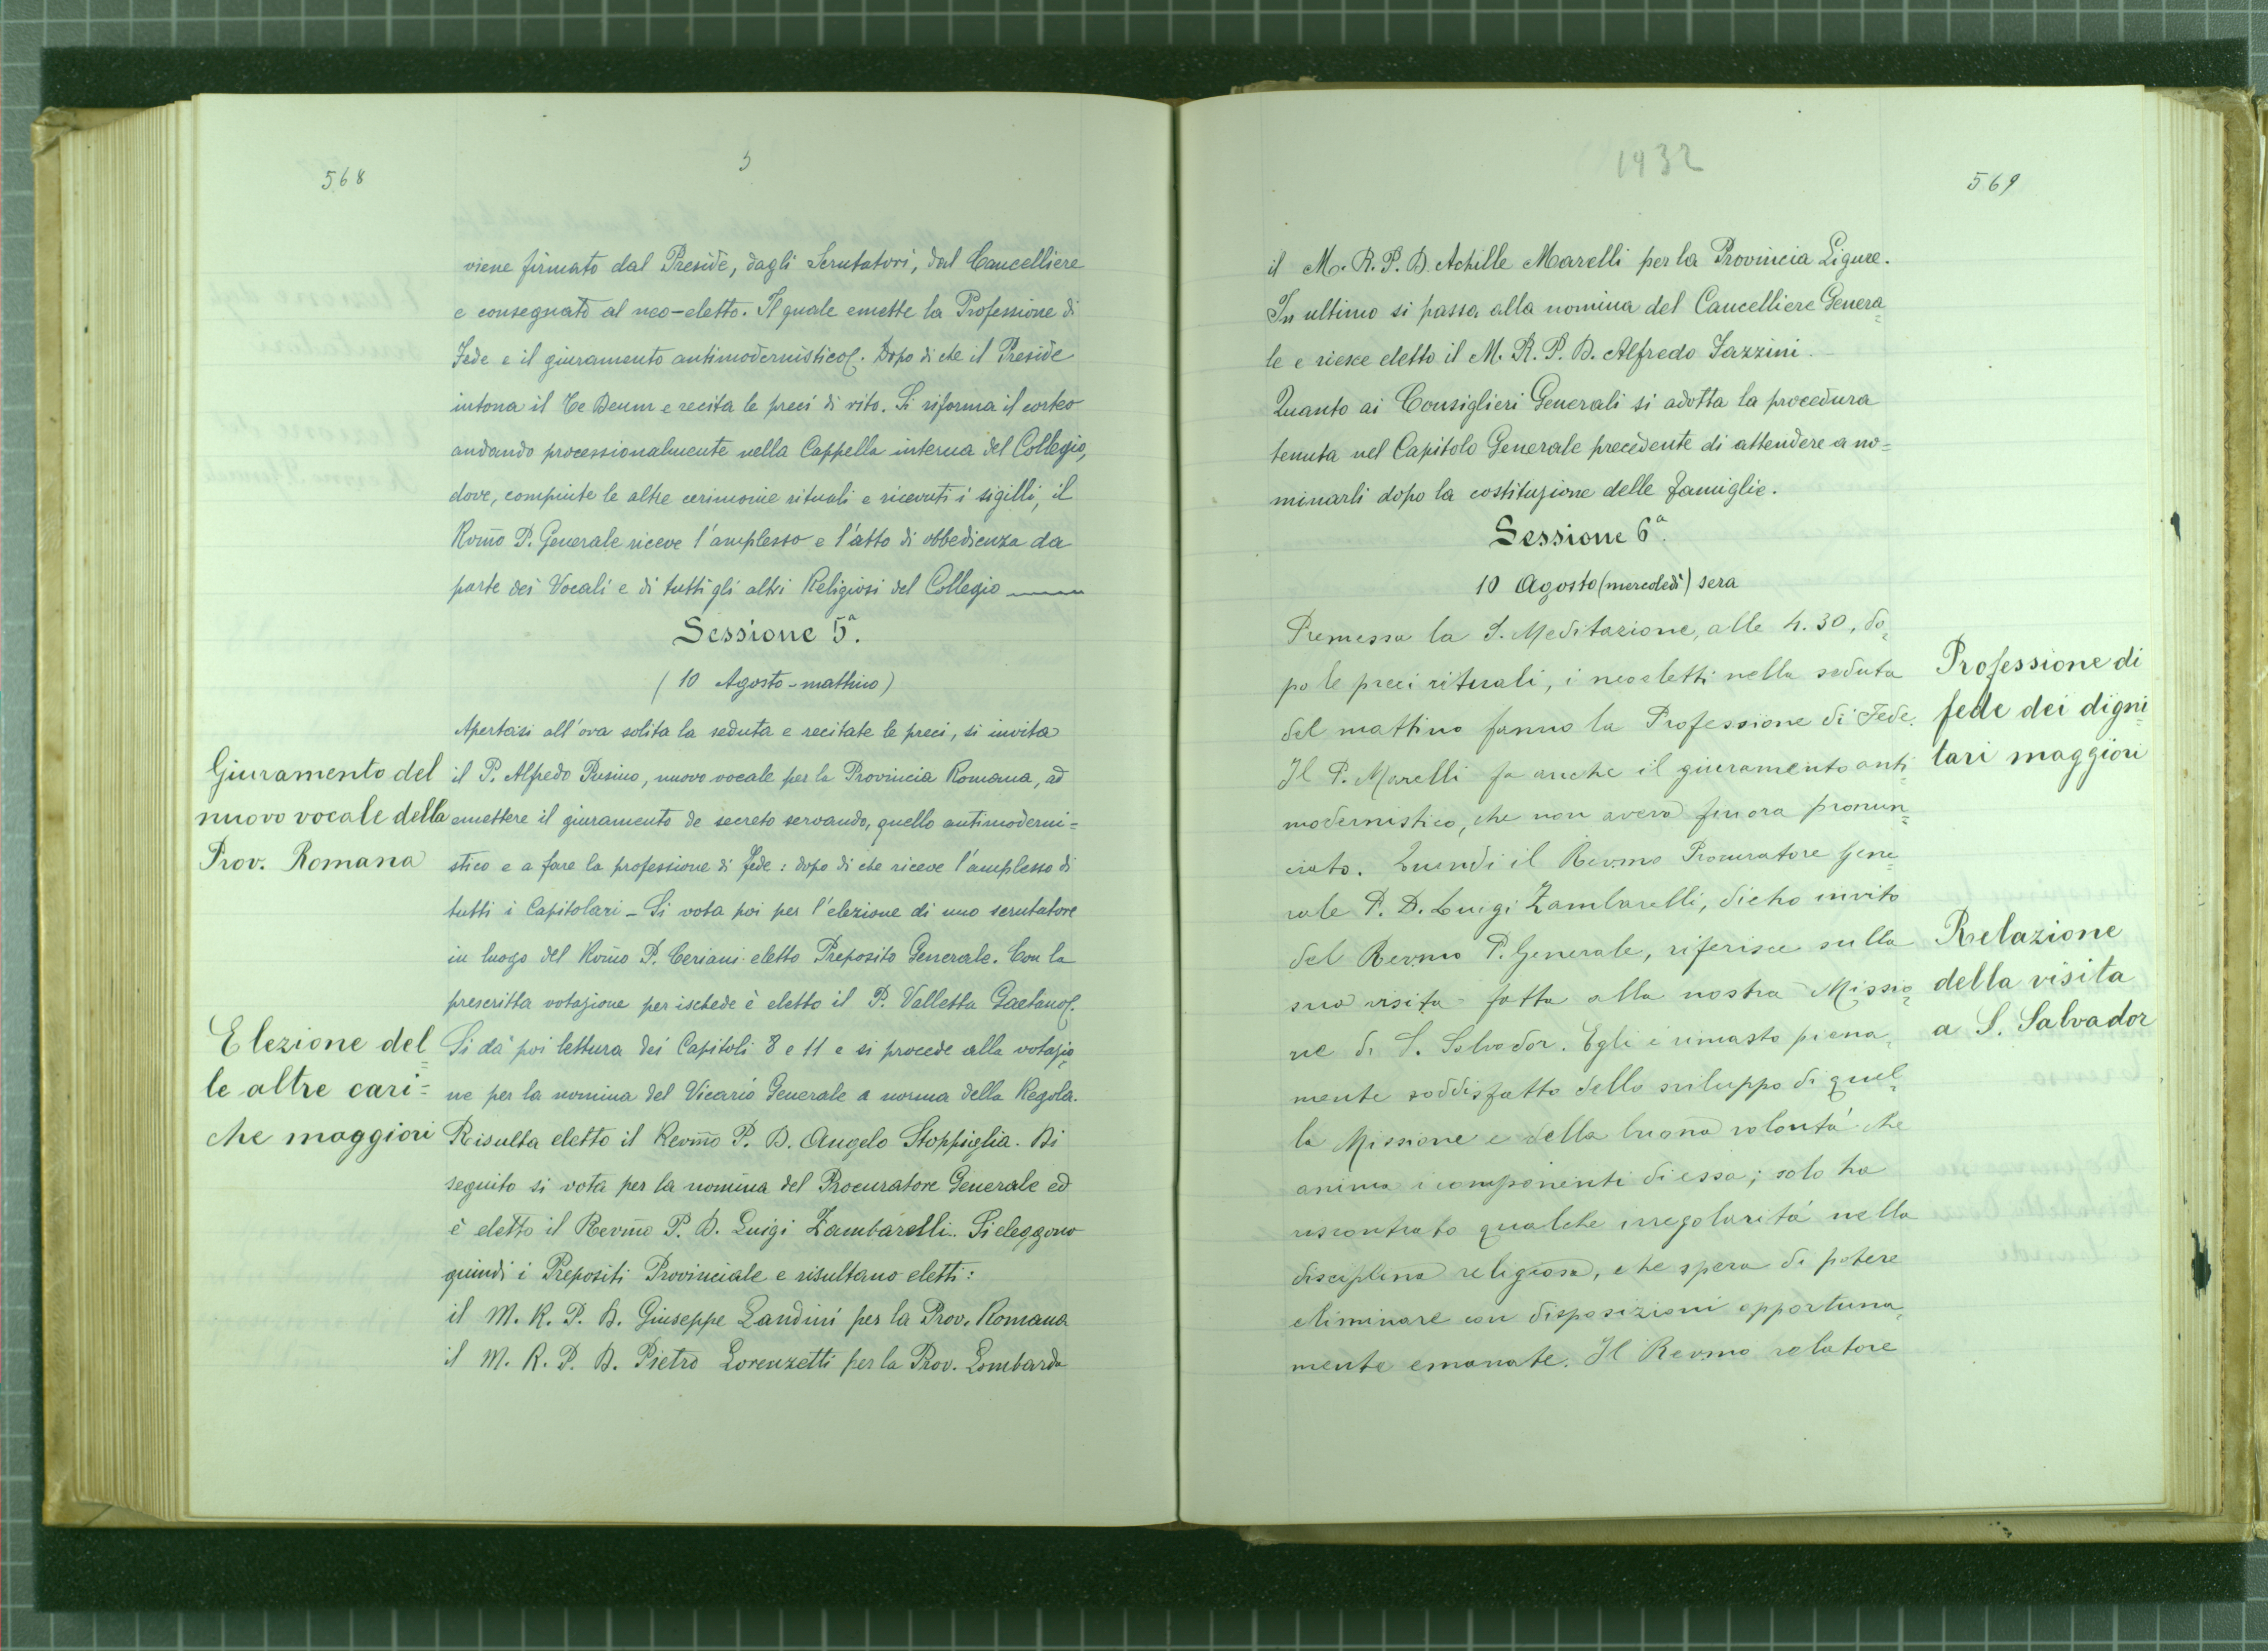 568
5
viene firmato dal Preside, dagli Scrutatori, dal Cancelliere
e consegnato al neo-eletto. Il quale emette la Professione di
Fede e il giuramento antimodernistico. Dopo di che il Preside
intona il Te Deum e recita le preci di rito. Si riforma il corteo
andando processionalmente nella Cappella interna del Collegio,
dove, compiute le altre cerimonie rituali e ricevuti i sigilli, il
Rom̃o P. Generale riceve l'amplesso e l'atto di obbedienza da
parte dei Vocali e di tutti gli altri Religiosi del Collegio
Sessione 5ª.
(10 Agosto-mattino)
Apertasi all'ora solita la seduta e recitate le preci, si invita
Giuramento del
nuovo vocale della
Prov. Romana
il P. Alfredo Pusino, nuovo vocale per la Provincia Romana, ad
emettere il giuramento de secreto servando, quello antimoderni=
stico e a fare la professione di fede: dopo di che riceve l'amplesso di
tutti i Capitolari - Si vota poi per l'elezione di uno scrutatore
in luogo del Rom̃o P. Ceriani eletto Preposito Generale. Con la
prescritta votazione per ischede è eletto il P. Valletta Gaetano.
Elezione del=
le altre cari=
che maggiori
Si dà poi lettura dei Capitoli 8 e 11 e si procede alla votazio=
ne per la nomina del Vicario Generale a norma della Regola.
Risulta eletto il Revm̃o P. D. Angelo Stoppiglia. Di
seguito si vota per la nomina del Procuratore Generale ed
è eletto il Revm̃o P. D. Luigi Zambarelli. Si eleggono
quindi i Prepositi Provinciale e risultano eletti:
il M. R. P. D. Giuseppe Landini per la Prov. Romana
il M. R. P. D. Pietro Lorenzetti per la Prov. Lombarda
1932
569
il M. R. P. D. Achille Marelli per la Provincia Ligure.
In ultimo si passa alla nomina del Cancelliere Genera=
le e riesce eletto il M. R. P. D. Alfredo Fazzini.
Quanto ai Consiglieri Generali si adotta la procedura
tenuta nel Capitolo Generale precedente di attendere a no=
minarli dopo la costituzione delle famiglie.
Sessione 6ª.
10 Agosto (mercoledì) sera
Premessa la S. Meditazione, alle 4.30, do=
po le preci rituali, i neoeletti nella seduta
del mattino fanno la Professione di Fede.
Il P. Marelli fa anche il giuramento anti=
modernistico, che non aveva finora pronun=
ciato. Quindi il Revmo Procuratore Gene=
rale P. D. Luigi Zambarelli, dietro invito
del Revmo P. Generale, riferisce sulla
sua visita fatta alla nostra Missio=
ne di S. Salvador. Egli è rimasto piena=
mente soddisfatto dello sviluppo di quel=
la Missione e della buona volontà che
anima i componenti di essa; solo ha
riscontrato qualche irregolarità nella
disciplina religiosa, che spera di potere
eliminare con disposizioni opportuna=
mente emanate. Il Revmo relatore
Professione di
fede dei digni=
tari maggiori
Relazione
della visita
a S. Salvador